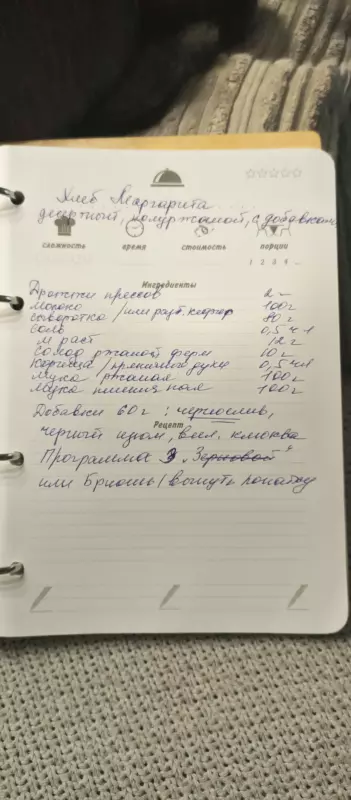 Хлеб Маргарита
десертный, полуржаной, с добавками
сложность время стоимость порции
1 2 3 4 ...
Ингредиенты
Дрожжи прессов 2 г
Молоко 100 г
Сыворотка /или разб. кефир 80 г
Соль 0,5 ч л
М раст 12 г
Солод ржаной ферм 10 г
Корица /пряничные духи 0,5 чл
Мука ржаная 100 г
Мука пшеничная 100 г
Добавки 60 г : чернослив,
Рецепт
черный изюм, вял. клюква
Программа 3 „Зерновой"
или Бриошь /вынуть лопатку